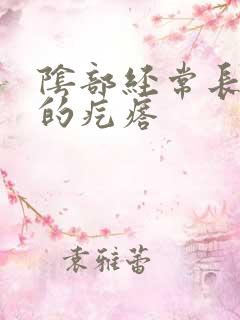 陰部經常長
的疙瘩
袁雅蕾